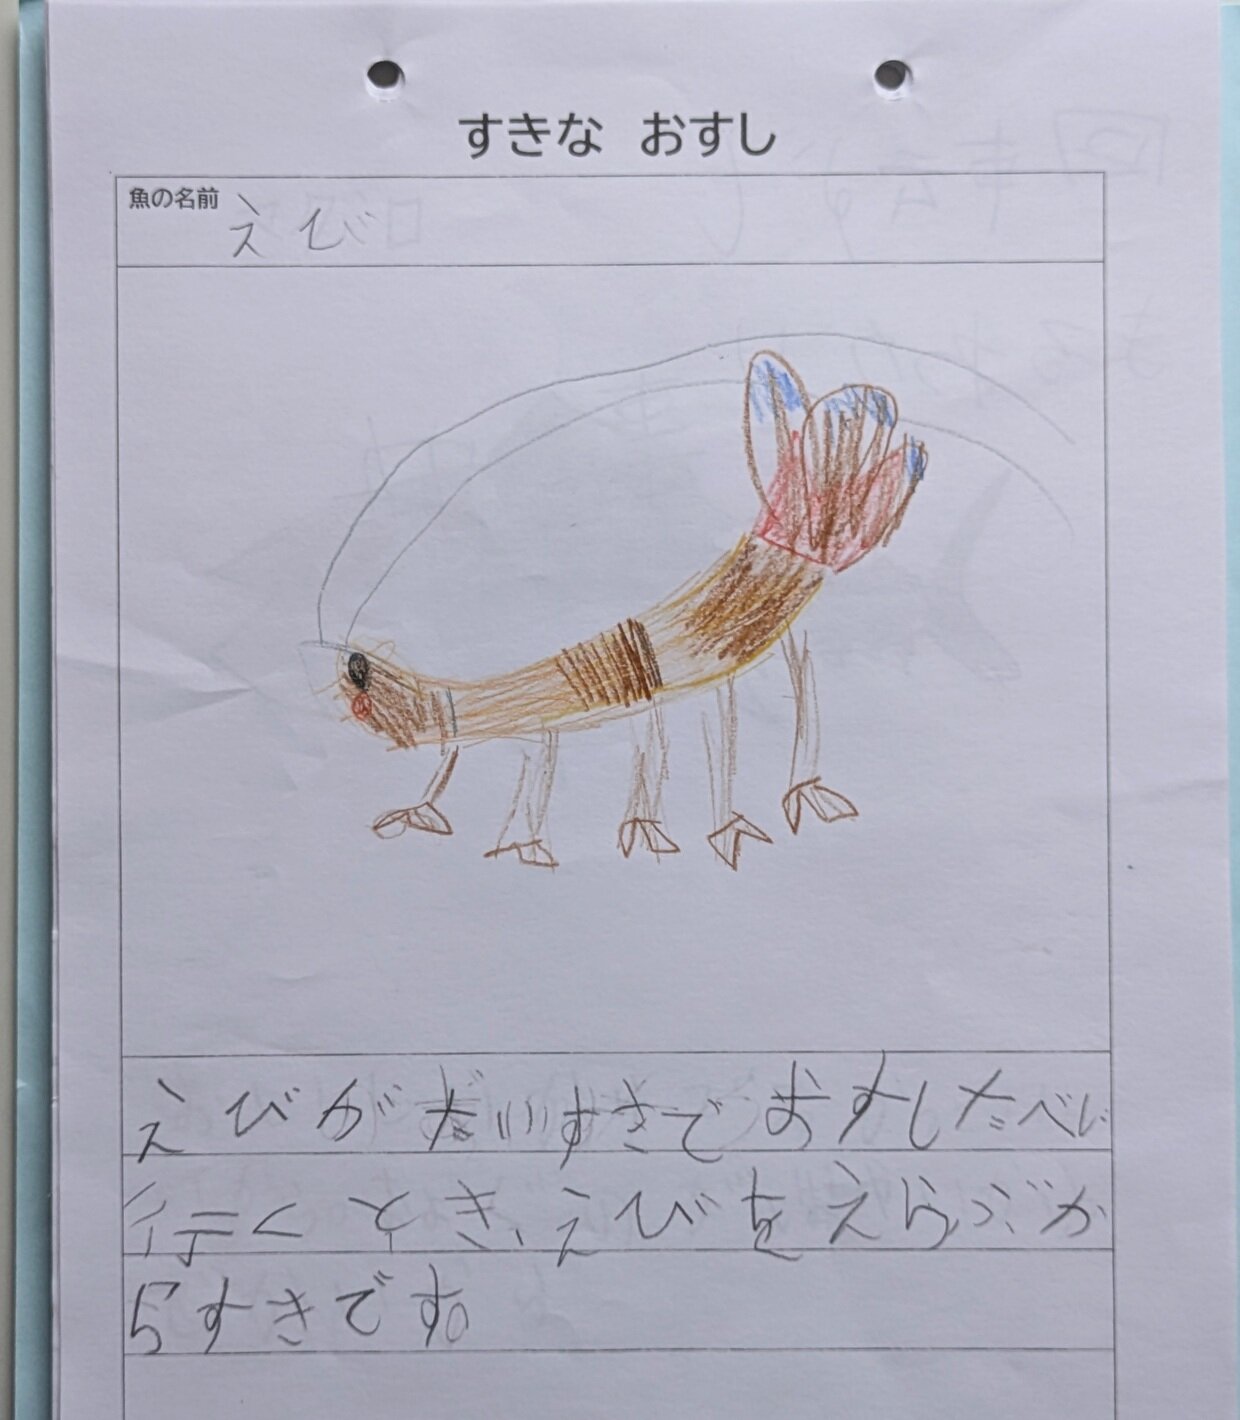 すきな おすし
魚の名前
えび
えびがだいすきでおすしたべに
行くとき、えびをえらぶか
らすきです。